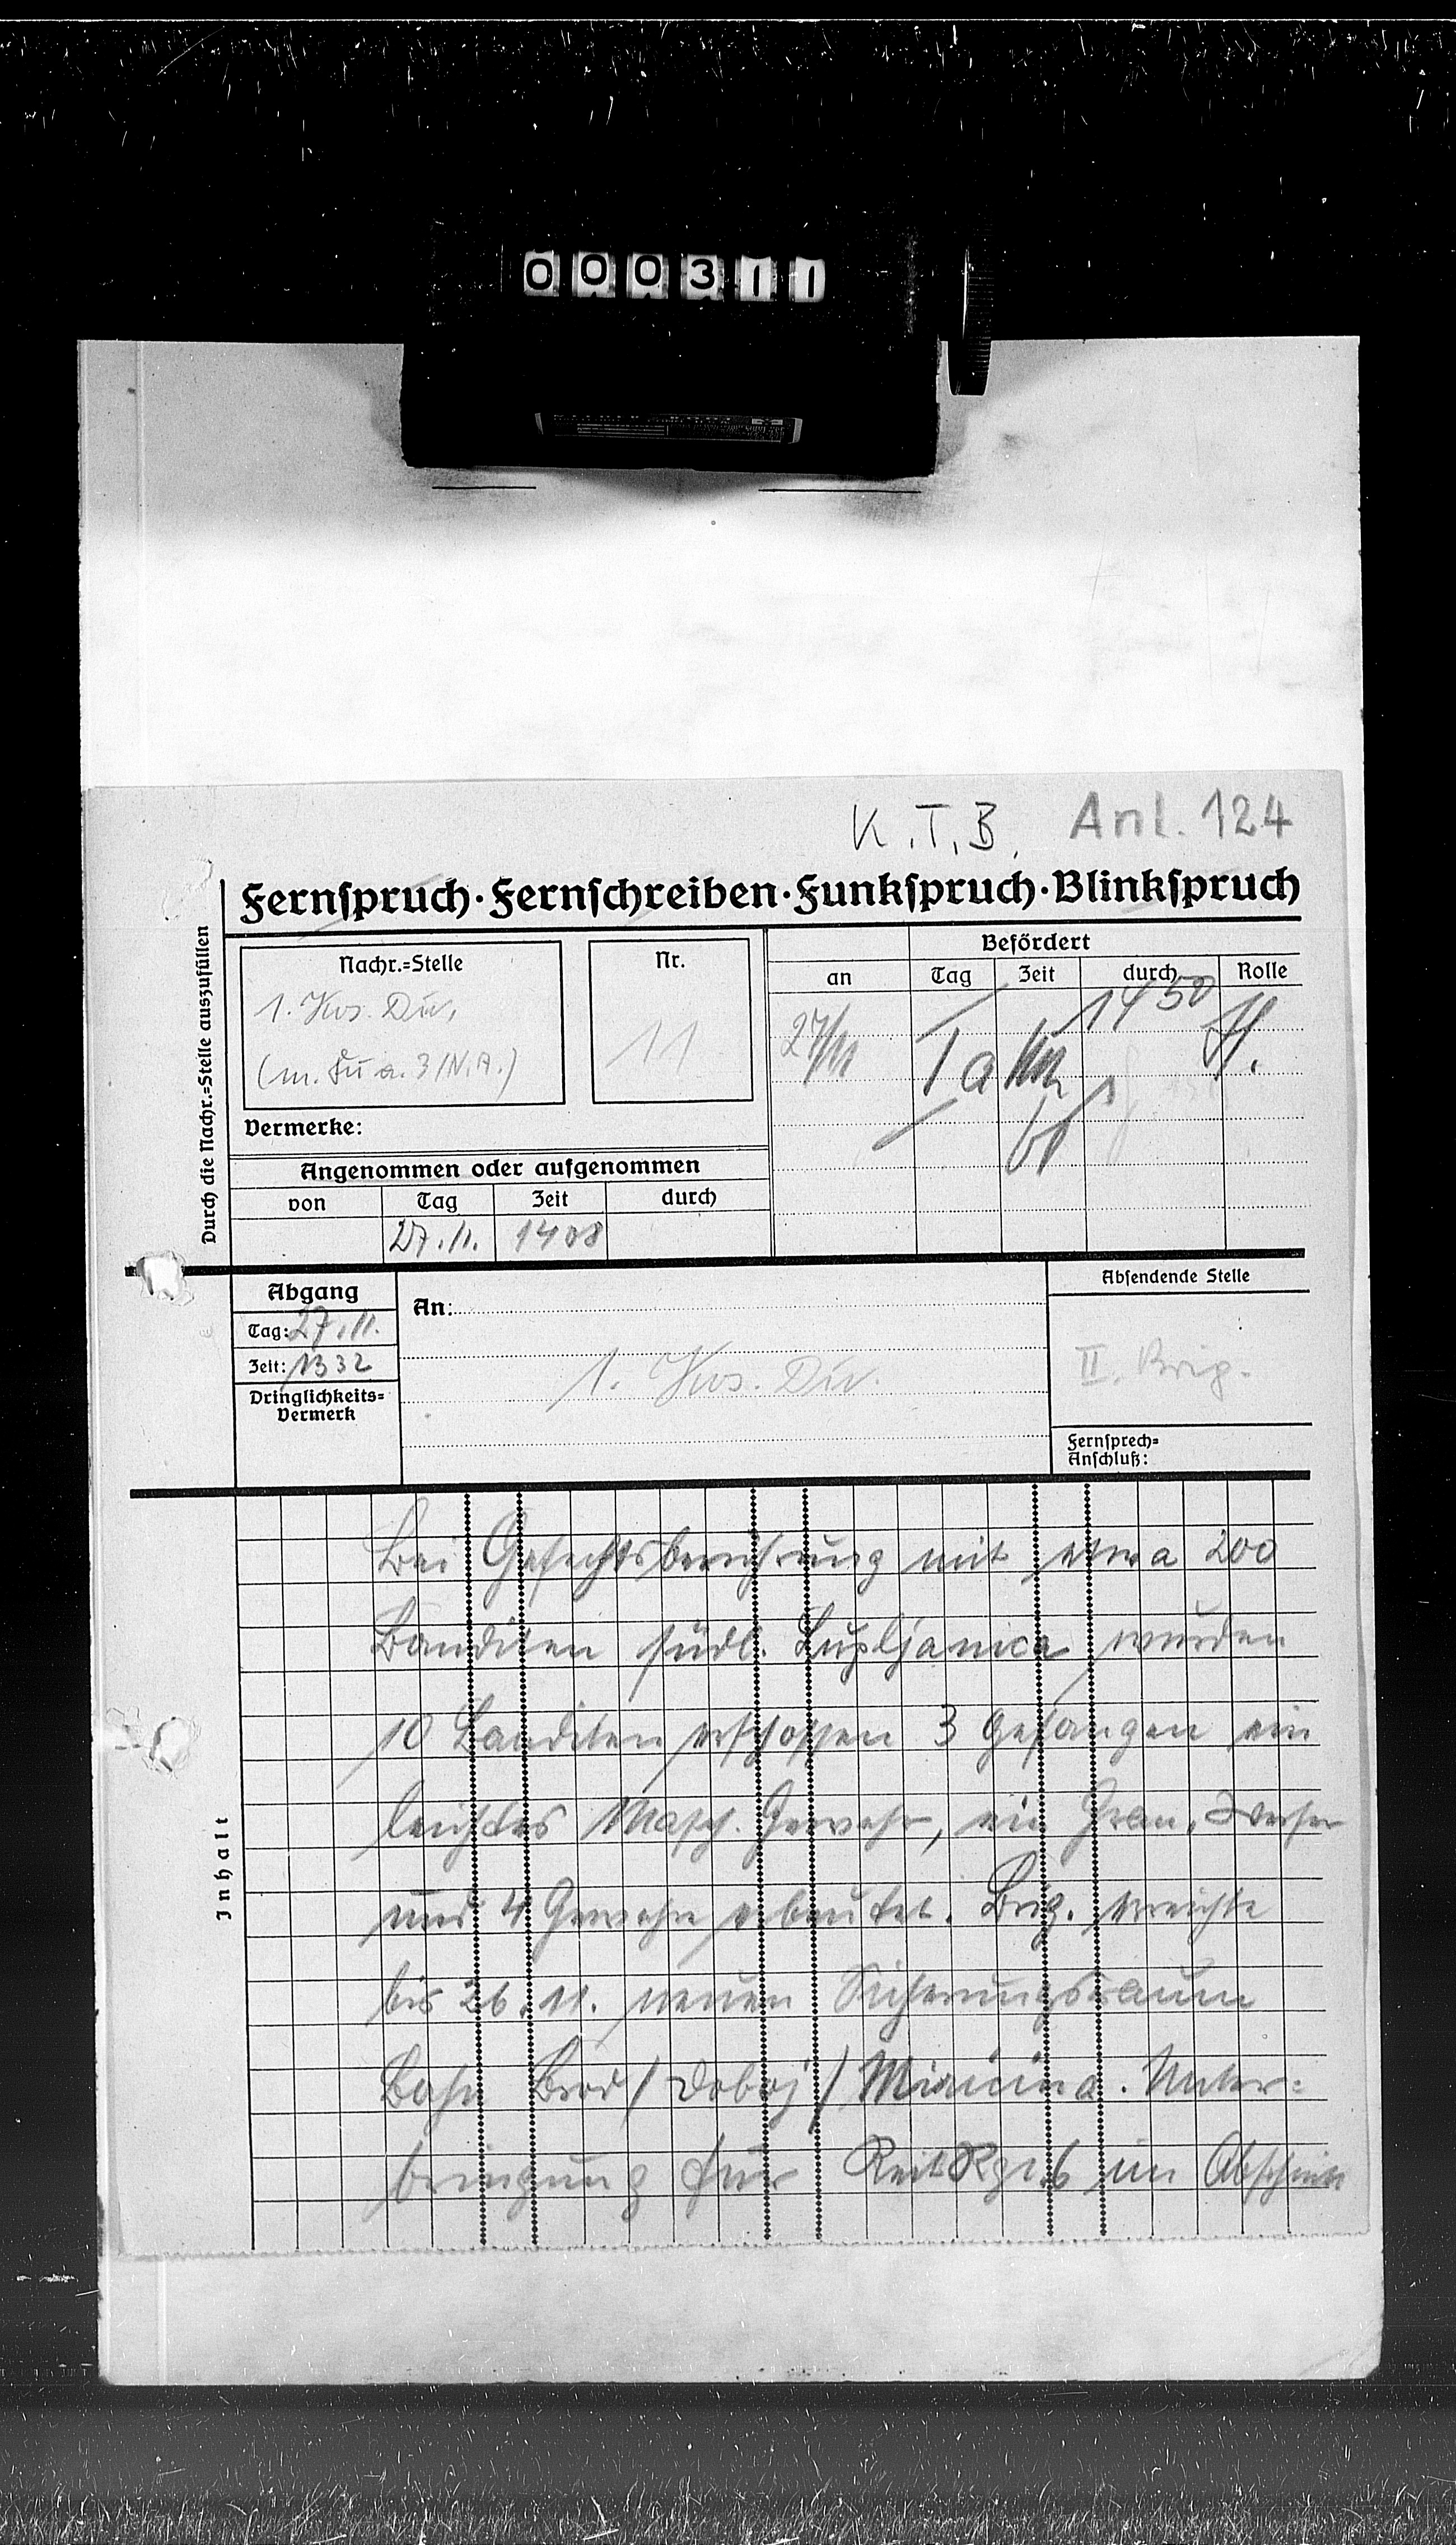 000311
K.T.B. Anl. 124
Fernspruch·Fernschreiben·Funkspruch·Blinkspruch
Durch die Nachr.=Stelle auszufüllen
Nachr.=Stelle
1. Kos. Div.
Nr.
11
Befördert
an Tag Zeit durch Rolle
27/11 Ia 1450
Vermerke:
Angenommen oder aufgenommen
von Tag Zeit durch
27.11. 1408
Abgang
Tag: 27.11.
Zeit: 1332
Dringlichkeits=
Vermerk
An:
1. Kos. Div.
Absendende Stelle
II. Brig.
Fernsprech=
Anschluß:
Inhalt
Bei Gefechtsberührung mit etwa 200
Banditen südl. Lupljanica wurden
10 Banditen erschossen 3 Gefangen ein
leichtes Masch. Gewehr, ein Gran. Werfer
und 4 Gewehre erbeutet. Brig. erreichte
bis 26.11. neuen Sicherungsraum
Bahn Brod / Doboj / Miricina. Unter=
bringung für Reit Rgt. 6 im Abschnitt